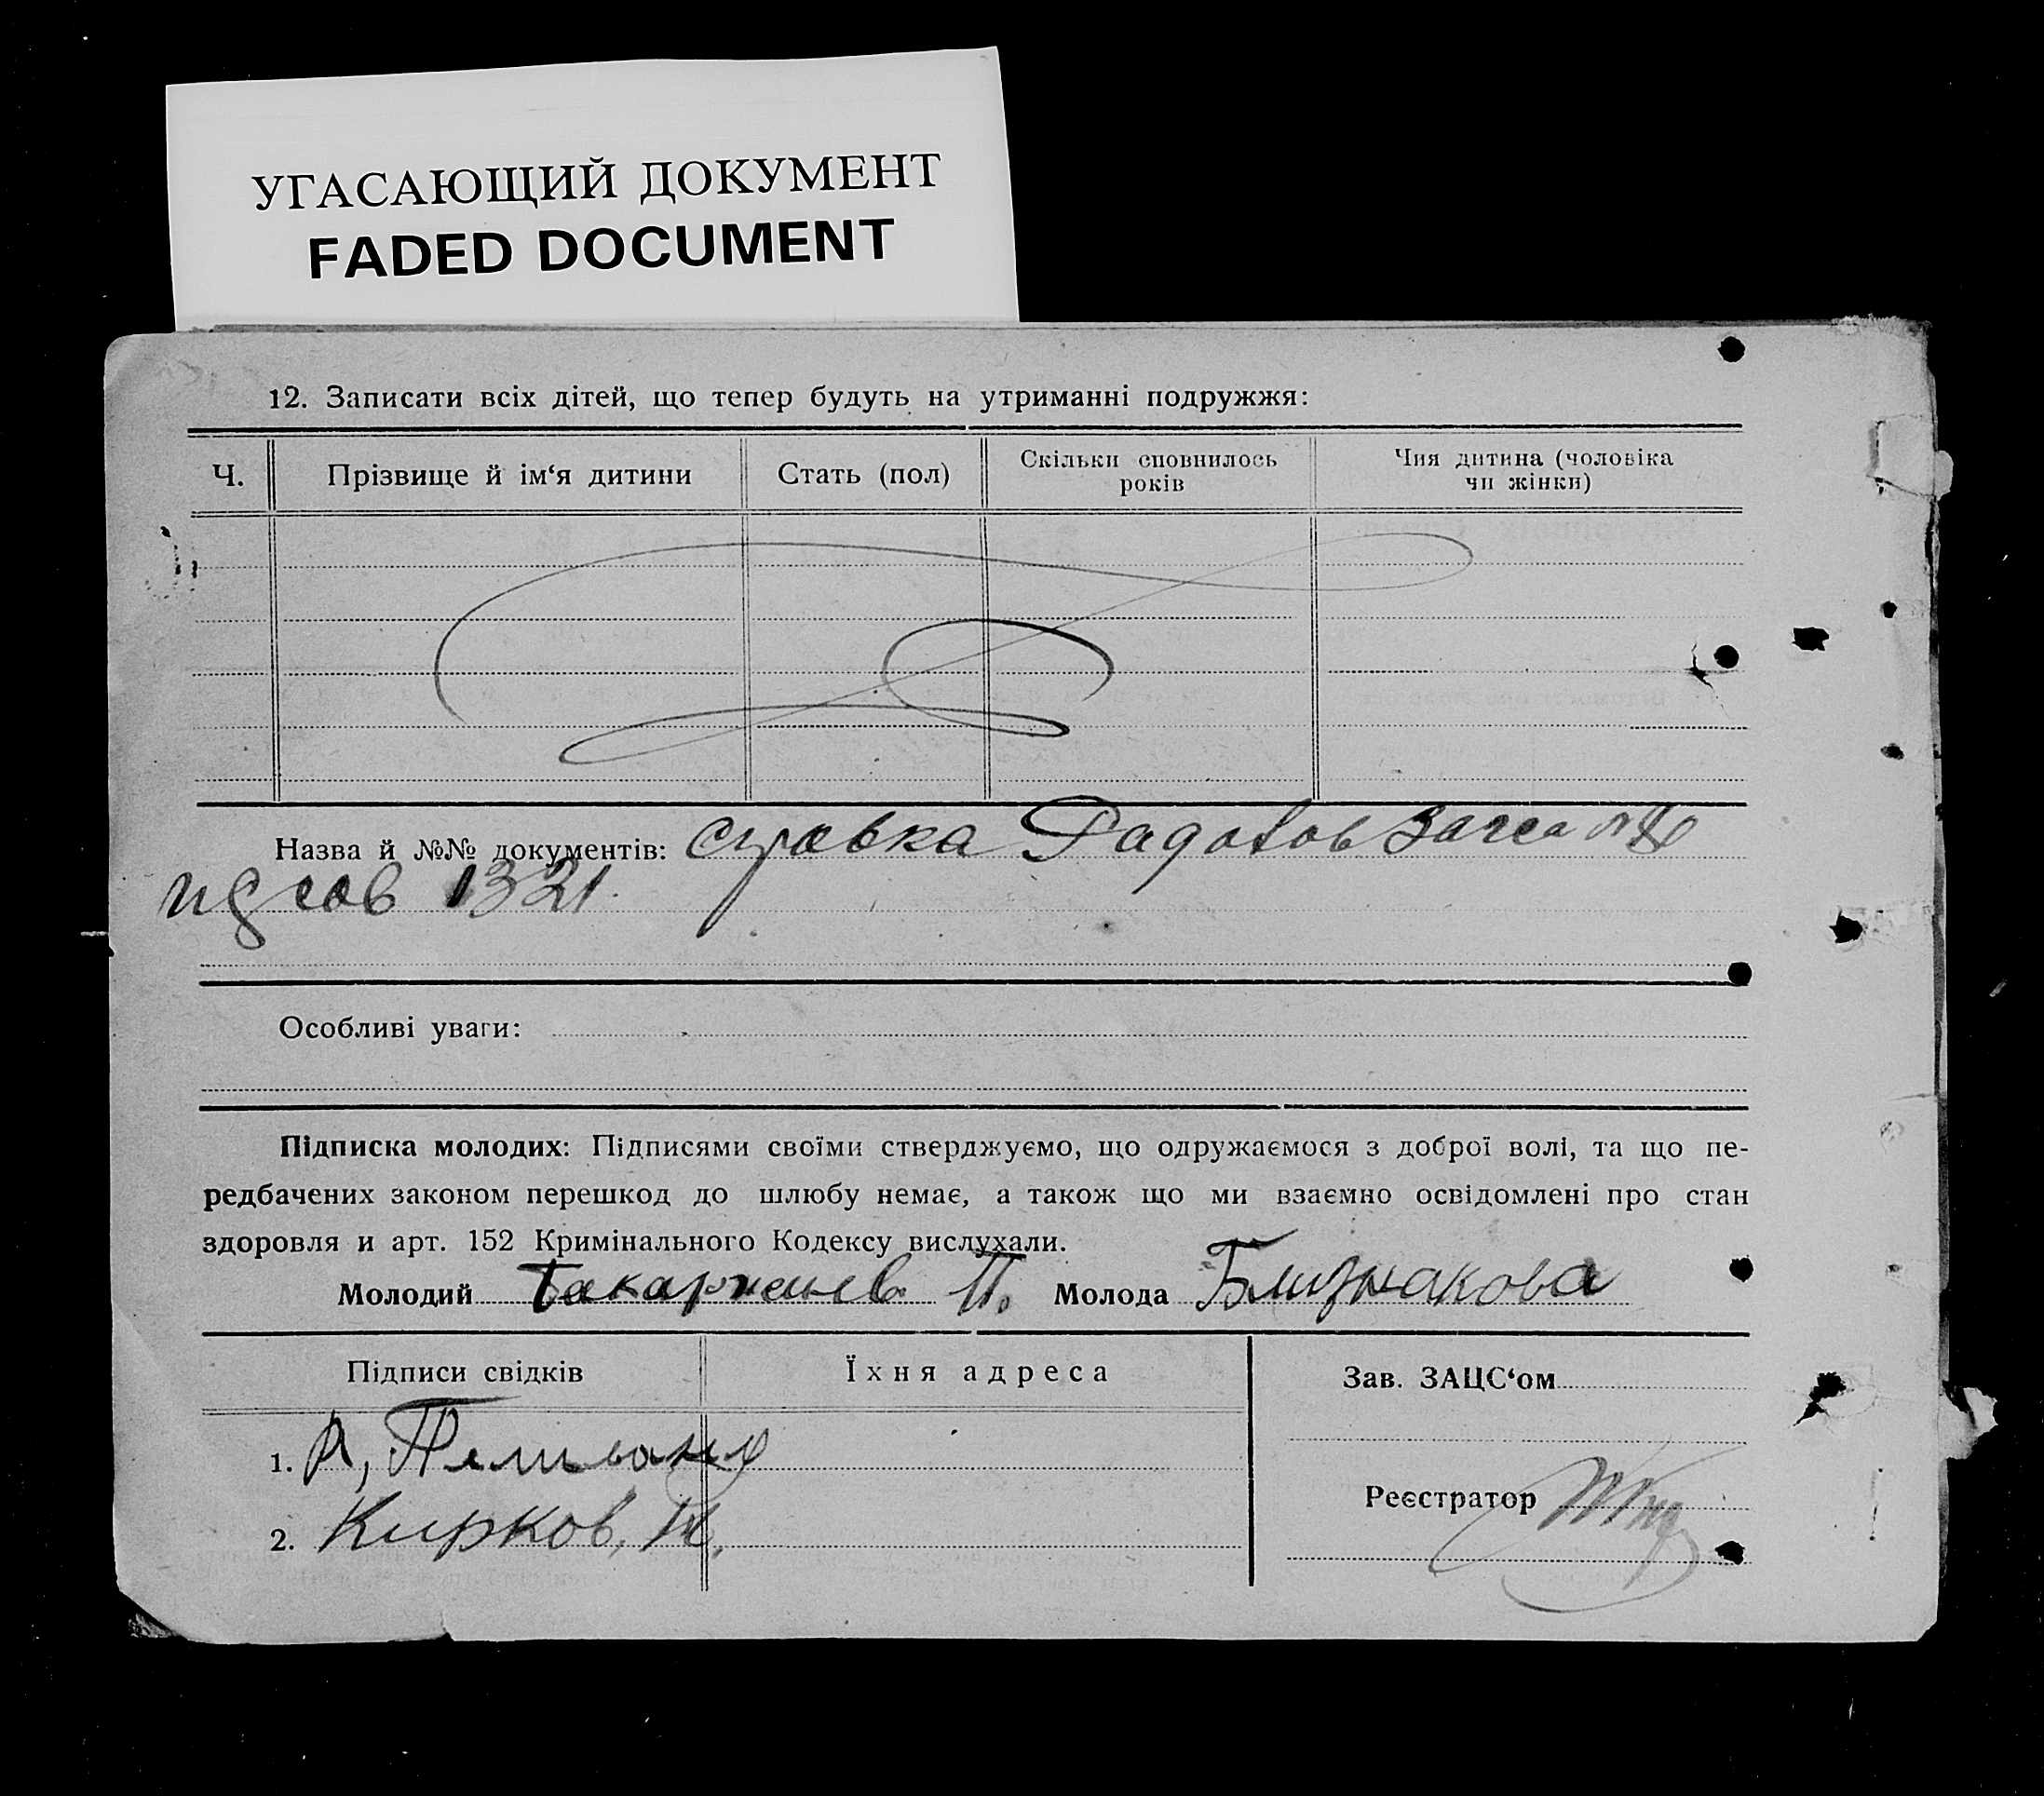 УГАСАЮЩИЙ ДОКУМЕНТ
FADED DOCUMENT
12. Записати всіх дітей, що тепер будуть на утриманні подружжя:
Ч.
Прізвище й ім‘я дитини
Стать (пол)
Скільки сповнилось
років
Чия дитина (чоловіка
чи жінки)
Назва й №№ документів: справка Загса
1321
Особливі уваги:
Підписка молодих: Підписями своїми стверджуємо, що одружаємося з доброї волі, та що пе-
редбачених законом перешкод до шлюбу немає, а також що ми взаємно освідомлені про стан
здоровля и арт. 152 Кримінального Кодексу вислухали.
Молодий П. Молода Близнакова
Підписи свідків
Їхня адреса
Зав. ЗАЦС‘ом
1.
Реєстратор
2. Кирков,